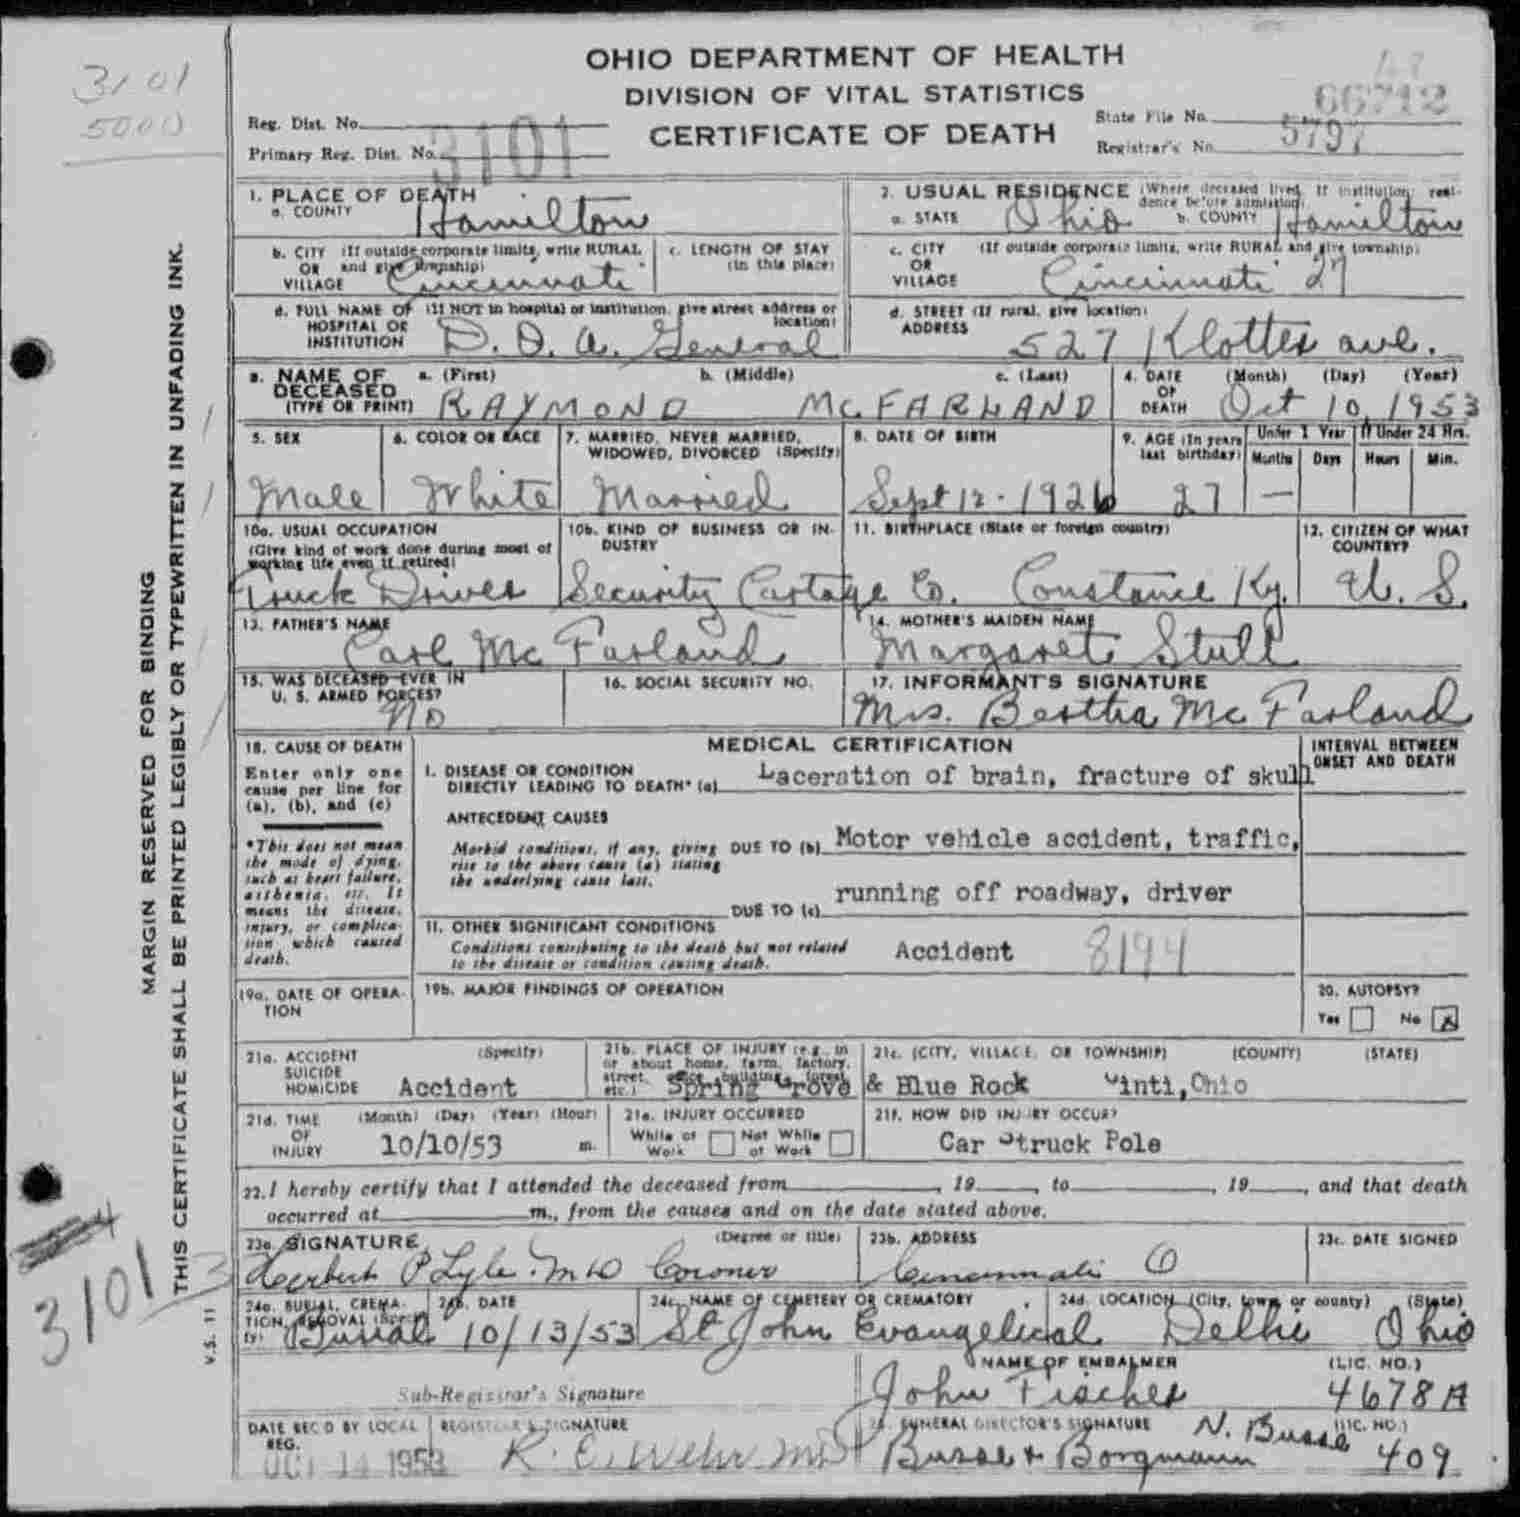 3101
5000
OHIO DEPARTMENT OF HEALTH
DIVISION OF VITAL STATISTICS
CERTIFICATE OF DEATH
Reg. Dist. No.
Primary Reg. Dist. No. 3101
State File No. 66712
Registrar's No. 5797
MARGIN RESERVED FOR BINDING
THIS CERTIFICATE SHALL BE PRINTED LEGIBLY OR TYPEWRITTEN IN UNFADING INK.
1. PLACE OF DEATH
a. COUNTY Hamilton
2. USUAL RESIDENCE (Where deceased lived. If institution: residence before admission)
a. STATE Ohio b. COUNTY Hamilton
b. CITY (If outside corporate limits, write RURAL
OR and give township)
VILLAGE Cincinnati
c. LENGTH OF STAY
(in this place)
c. CITY (If outside corporate limits, write RURAL and give township)
OR
VILLAGE Cincinnati 27
d. FULL NAME OF (If NOT in hospital or institution, give street address or
HOSPITAL OR location)
INSTITUTION D. O. A. General
d. STREET (If rural, give location)
ADDRESS 527 Klotter ave.
3. NAME OF DECEASED
(TYPE OR PRINT)
a. (First) b. (Middle) c. (Last)
RAYMOND McFARLAND
4. DATE OF DEATH (Month) (Day) (Year)
Oct 10, 1953
5. SEX
Male
6. COLOR OR RACE
White
7. MARRIED, NEVER MARRIED,
WIDOWED, DIVORCED (Specify)
Married
8. DATE OF BIRTH
Sept 12 - 1926
9. AGE (In years
last birthday)
27
Under 1 Year
Months Days
—
If Under 24 Hrs.
Hours Min.
10a. USUAL OCCUPATION
(Give kind of work done during most of
working life even if retired)
Truck Driver
10b. KIND OF BUSINESS OR INDUSTRY
Security Cartage Co.
11. BIRTHPLACE (State or foreign country)
Constance Ky.
12. CITIZEN OF WHAT
COUNTRY?
U. S.
13. FATHER'S NAME
Carl McFarland
14. MOTHER'S MAIDEN NAME
Margaret Stull
15. WAS DECEASED EVER IN
U. S. ARMED FORCES?
No
16. SOCIAL SECURITY NO.
17. INFORMANT'S SIGNATURE
Mrs. Bertha McFarland
18. CAUSE OF DEATH
Enter only one
cause per line for
(a), (b), and (c)
*This does not mean
the mode of dying,
such as heart failure,
asthenia, etc. It
means the disease,
injury, or complica-
tion which caused
death.
MEDICAL CERTIFICATION
INTERVAL BETWEEN
ONSET AND DEATH
I. DISEASE OR CONDITION
DIRECTLY LEADING TO DEATH* (a) Laceration of brain, fracture of skull
ANTECEDENT CAUSES
Morbid conditions, if any, giving
rise to the above cause (a) stating
the underlying cause last.
DUE TO (b) Motor vehicle accident, traffic,
DUE TO (c) running off roadway, driver
II. OTHER SIGNIFICANT CONDITIONS
Conditions contributing to the death but not related
to the disease or condition causing death.
Accident
19a. DATE OF OPERA-
TION
19b. MAJOR FINDINGS OF OPERATION
20. AUTOPSY?
Yes No X
21a. ACCIDENT (Specify)
SUICIDE
HOMICIDE Accident
21b. PLACE OF INJURY (e.g., in
or about home, farm, factory,
street, office building, forest,
etc.) Spring Grove & Blue Rock
21c. (CITY, VILLAGE, OR TOWNSHIP) (COUNTY) (STATE)
Cinti, Ohio
21d. TIME OF INJURY (Month) (Day) (Year) (Hour)
10/10/53 m.
21e. INJURY OCCURRED
While at Work Not While at Work
21f. HOW DID INJURY OCCUR?
Car Struck Pole
22. I hereby certify that I attended the deceased from , 19 , to , 19 , and that death
occurred at m., from the causes and on the date stated above.
23a. SIGNATURE (Degree or title)
Herbert P Lyle MD Coroner
23b. ADDRESS
Cincinnati O
23c. DATE SIGNED
24a. BURIAL, CREMA-
TION, REMOVAL (Specify)
Burial
24b. DATE
10/13/53
24c. NAME OF CEMETERY OR CREMATORY
St John Evangelical
24d. LOCATION (City, town or county) (State)
Delhi Ohio
3101
V.S. 11
Sub-Registrar's Signature
NAME OF EMBALMER (LIC. NO.)
John Fischer 4678A
DATE REC'D BY LOCAL
REG.
REGISTRAR'S SIGNATURE
K. E. Wehr MD
FUNERAL DIRECTOR'S SIGNATURE (LIC. NO.)
N. Busse
Busse & Borgmann 409